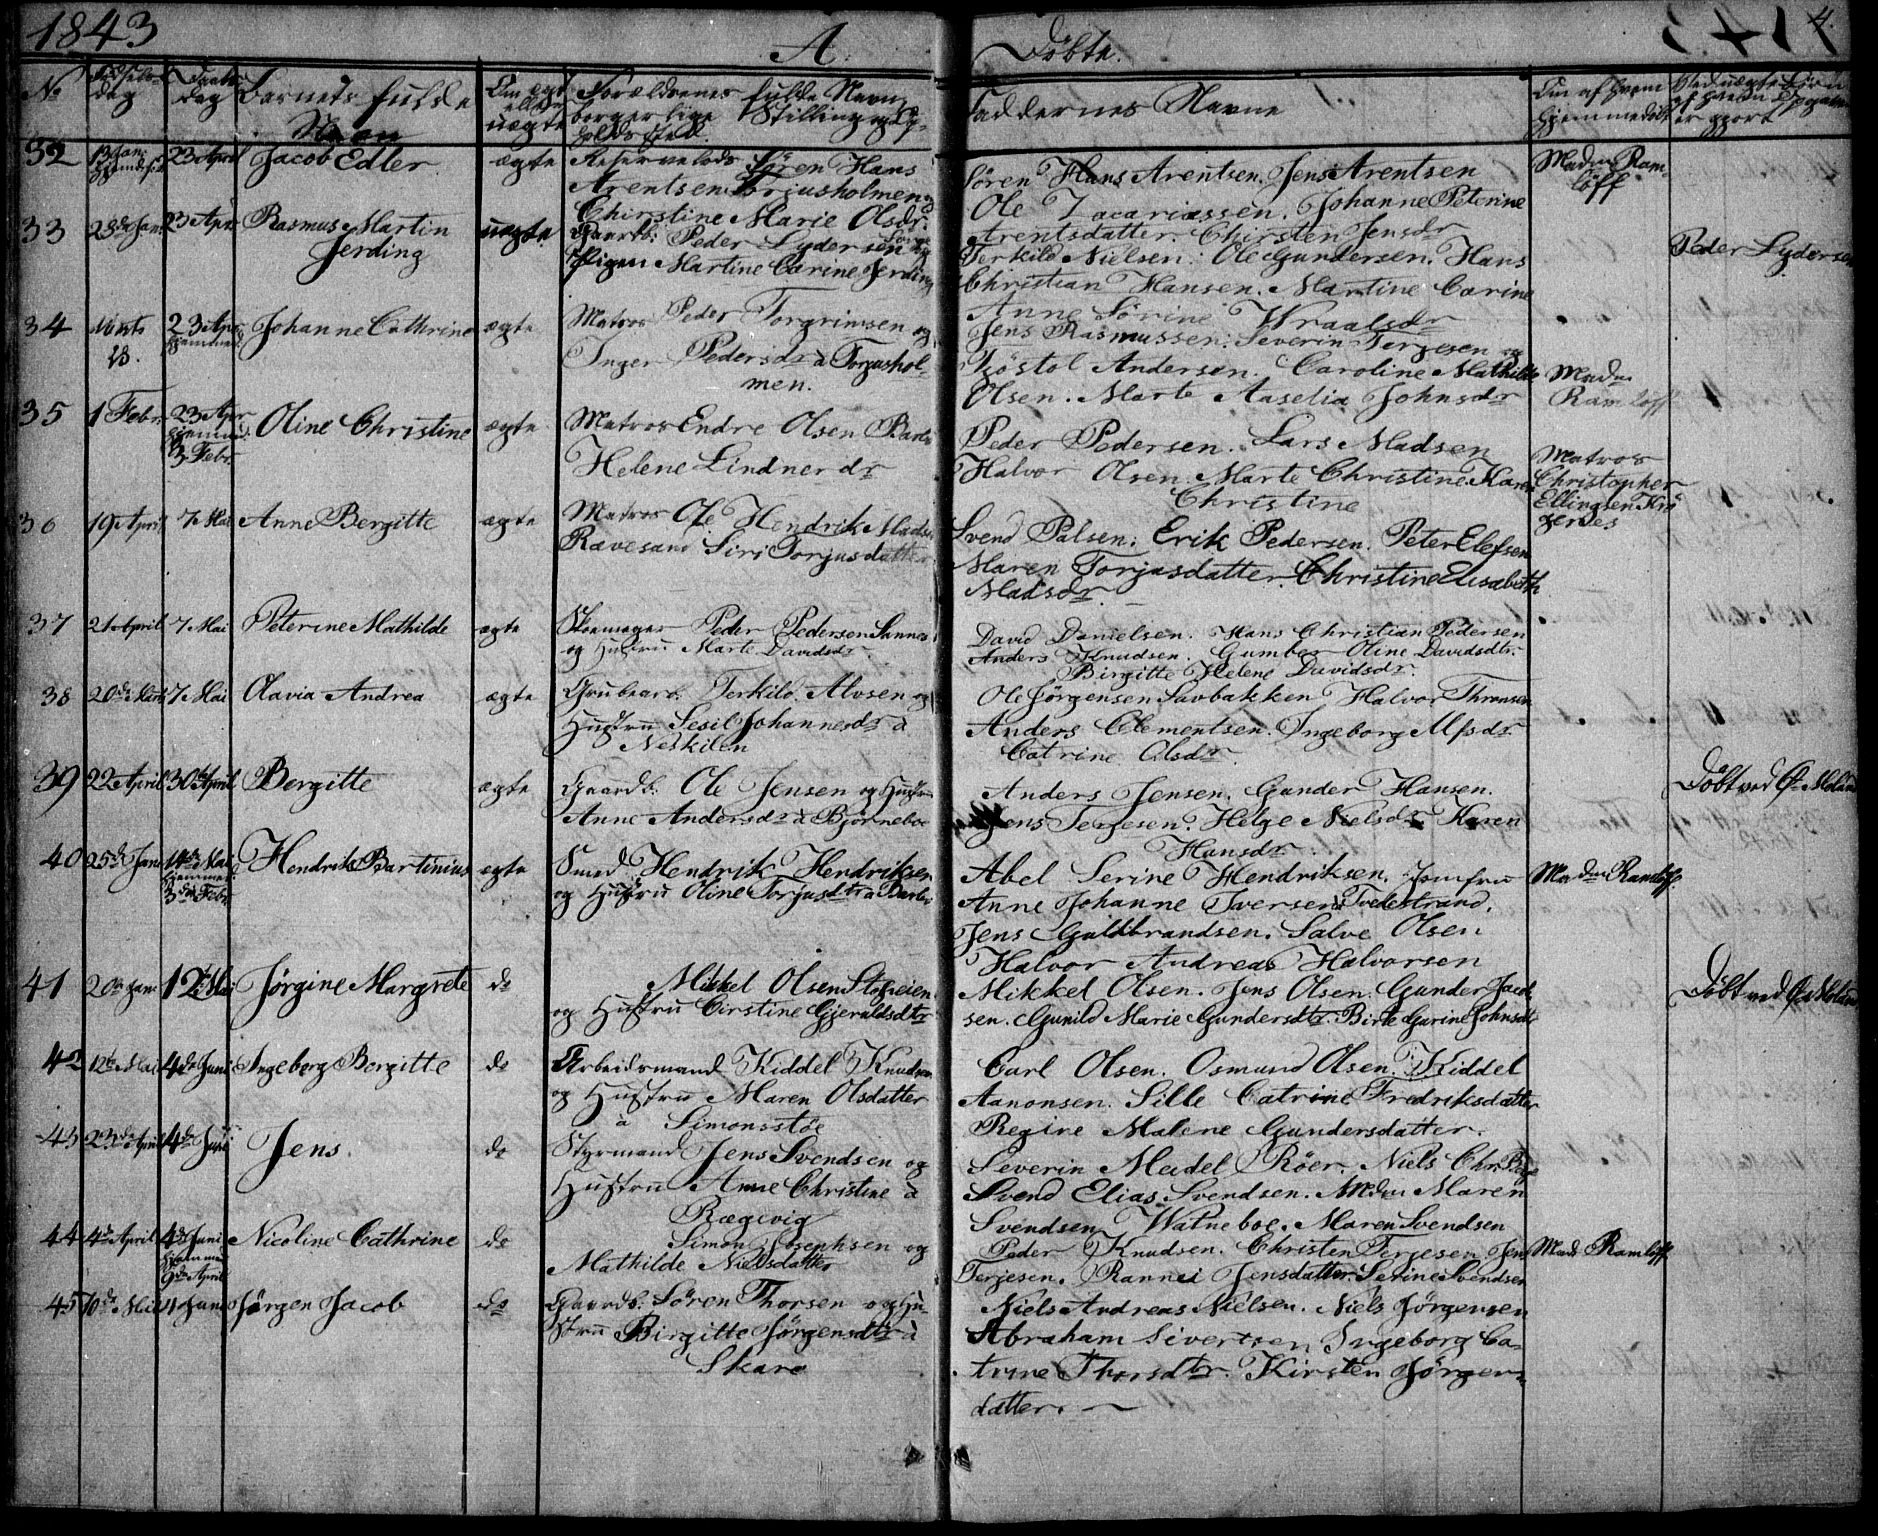 1843
A.
Døbte.
4.
No
Fødsels-
dag
Daabs
dag
Barnets fulde
Navn
Om ægt
eller
uægte
Forældrenes fulde Navn,
borgerlige Stilling og Op-
holdssted.
Faddernes Navne
Om af hvem
hjemmedøbt
Ved uægte Børn
er gjort
32 13 Jan. 23 April Jacob Edler ægte
Søren Hans
Arentsen Torjusholmen
Christine Marie Olsdr.
Sören Hans Arentsen. Jens Arentsen
Ole Zacariassen. Johanne Peterine
Arentsdatter. Chirsten Jensdr
Madm Ram-
löff
33 28de Jan. 23 Apr. Rasmus Martin
Jerding
uægte
Gaardb. Peder Lydersen og
Pigen Martine Carine Jerding
Terkild Nielsen. Ole Gundersen. Hans
Christian Hansen. Martine Carine
Anne Sörine Wraalsdr
Peder Lydersen
34 23 Apr. Johanne Cathrine ægte
Matros Peder Torgrimsen og
Inger Pedersdr à Torjushol-
men.
Jens Rasmussen. Severin Terjesen og
Tjöstol Andersen. Caroline Mathilde
Olsen. Marte Aaselia Johnsdr
Madm
Ramlöff
35 1 Febr. 23 Apr
hjemmed.
3 Febr.
Oline Christine ægte
Matros Endre Olsen Barbo
Helene Lindner dr
Peder Pedersen. Lars Madsen
Halvor Olsen. Marte Christine Karen
Christine
Matros
Christopher
Ellingsen Krö
gernes
36 19 April 7 Mai Anne Bergitte ægte
Matros Ole Hendrik Madsen
Rævesand Siri Torjusdatter
Svend Palsen. Erik Pedersen. Peter Elefsen
Maren Torjusdatter. Christine Elisabeth
Madsdr.
37 21 April 7 Mai Peterine Mathilde ægte
Skoemager Peder Pedersen Sannes
og Hustru Marte Davidsdr.
David Danielsen. Hans Christian Pedersen
Anders Knudsen. Gumbor Oline Davidsdtr.
Birgitte Helene Davidsdr.
38 20de Marts 7 Mai Olavia Andrea ægte
Terkild Alvsen og
Hustru Sesil Johannesdr à
Neskilen
Ole Jörgensen Savbakken Halvor Thronsen
Anders Clementsen. Ingeborg Ulfsdr
Catrine Olsdr.
39 22 April 30te April Bergitte ægte
Gaardb. Ole Jensen og Hustru
Anne Andersdr à Bjørneboe
Anders Jensen. Gunder Hansen.
Jens Terjesen. Helge Nielsdr. Karen
Hansdr.
Døbt ved Øe. Moland
40 25de Jan. 14de Mai
hjemmed.
3de Febr.
Hendrik Bartinius ægte
Smed Hendrik Hendriksen
og Hustru Oline Torjusdtr à Barbo
Abel Serine Hendriksen. Jomfru
Anne Johanne Iversen Tvedestrand.
Jens Guldbrandsen. Salve Olsen
Halvor Andreas Halvorsen
Madm Ramlöff
41 20de Jan. 12te Mai Jørgine Margrete do
Mikkel Olsen Stølseien
og Hustru Cirstine Gjeruldsdtr
Mikkel Olsen. Jens Olsen. Gunder Jacob
sen. Gunild Marie Gundersdtr. Birte Gurine Johnsdtr
Døbt ved Øe Moland
42 12te Mai 4de Juni Ingeborg Bergitte do
Arbeidsmand Kiddel Knudsen
og Hustru Maren Olsdatter
à Simonsstøe
Carl Olsen. Osmund Olsen. Kiddel
Aanonsen. Sille Catrine Fredriksdatter
Regine Malene Gundersdatter.
43 23de April 4de Juni Jens. do
Styrmand Jens Svendsen og
Hustru Anne Christine à
Rægevig
Severin Meidel Röer. Niels Chr. Bøe
Svend Elias Svendsen. Madm Maren
Svendsen Watneboe. Maren Svendsen
44 4de April 4de Juni
hjemmed
9de April
Nicoline Cathrine do
Simon Josephsen og
Mathilde Nielsdatter
Peder Knudsen. Christen Terjesen Jens
Terjesen. Rannei Jensdatter. Serine Svendsen
Mad Ramlöff
45 10de Mai Juni Jørgen Jacob do
Gaardb. Søren Thorsen og Hu-
stru Birgitte Jørgensdtr à
Skare
Niels Andreas Nielsen. Niels Jörgensen
Abraham Sivertsen Ingeborg Ca-
trine Thorsdtr. Kirsten Jörgens-
datter.